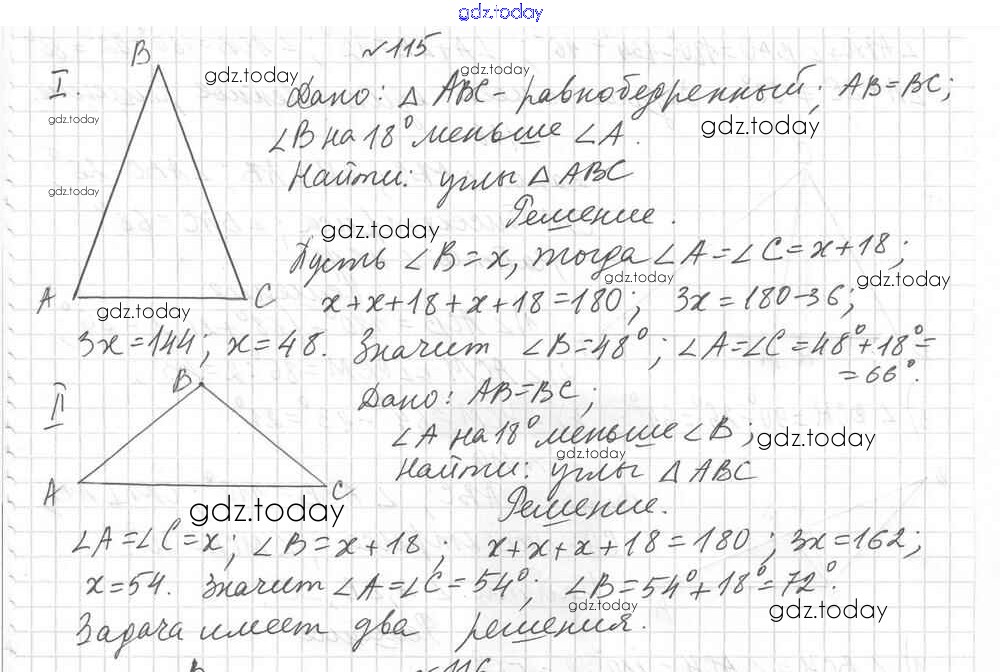 gdz.today
№115
I. B gdz.today gdz.today
Дано: △ ABC - равнобедренный; AB=BC;
gdz.today ∠B на 18° меньше ∠A. gdz.today
gdz.today Найти: углы △ ABC
Решение.
gdz.today
Пусть ∠B=x, тогда ∠A=∠C=x+18;
gdz.today gdz.today
A C x+x+18+x+18=180; 3x=180-36;
gdz.today
3x=144; x=48. Значит ∠B=48°; ∠A=∠C=48°+18°=
=66°.
II B Дано: AB=BC;
∠A на 18° меньше ∠B; gdz.today
gdz.today
Найти: углы △ ABC
A C Решение.
gdz.today
∠A=∠C=x; ∠B=x+18; x+x+x+18=180; 3x=162;
x=54. Значит ∠A=∠C=54°; ∠B=54°+18°=72°.
gdz.today gdz.today
Задача имеет два решения.
B №116